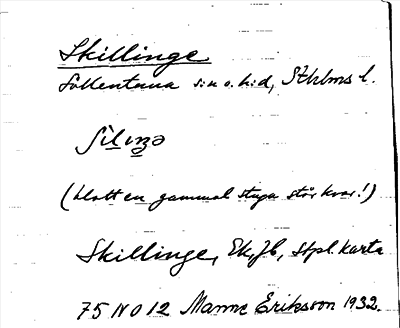 Skillinge
Sollentuna sn o. hd, Sthlms l.
(blott en gammal stuga står kvar!)
Skillinge, Ek, Jb, Stpl. karta
75 NO 12 Manne Eriksson 1932.